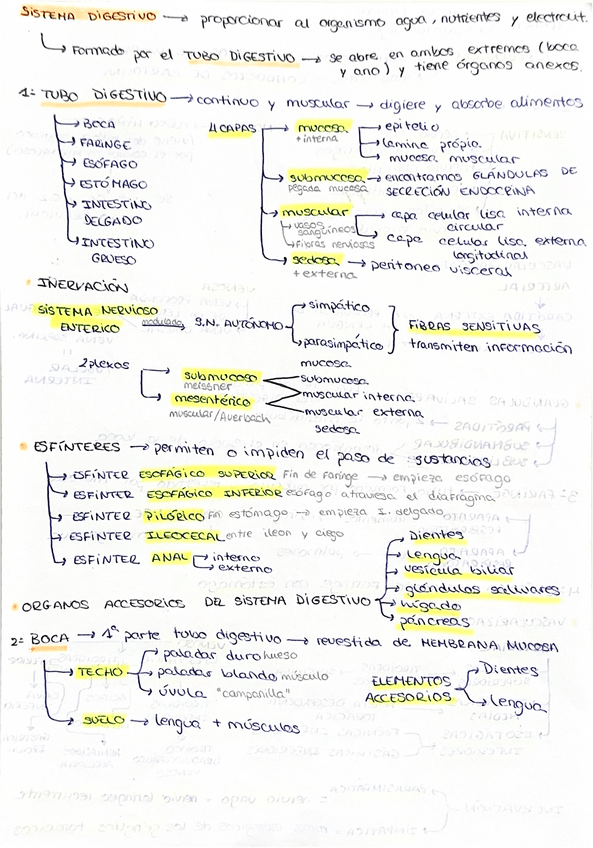 SISTEMA DIGESTIVO → proporcionar al organismo agua, nutrientes y electrout.
↳ Formado por el TUBO DIGESTIVO → se abre en ambos extremos (boca
y ano) y tiene órganos anexos.
1= TUBO DIGESTIVO → continuo y muscular → digiere y absorbe alimentos
→ BOCA
→ FARINGE
→ ESÓFAGO
→ ESTÓMAGO
→ INTESTINO
DELGADO
→ INTESTINO
GRUESO
4 CAPAS
→ mucosa
+ interna
→ epitelio
→ lamina própia
→ mucosa muscular
→ submucosa → encontramos GLÁNDULAS DE
pegada mucosa SECRECIÓN ENDOCRINA
→ muscular
→ vasos
sanguíneos
→ Fibras nerviosas
→ capa celular lisa interna
circular
→ capa celular lisa externa
longitudinal
→ serosa → peritoneo visceral
+ externa
• INERVACIÓN
SISTEMA NERVIOSO
ENTERICO modulado S.N. AUTÓNOMO
→ simpático
→ parasimpático
FIBRAS SENSITIVAS
transmiten información
2 plexos
→ submucoso
meissner
→ mesentérico
muscular/Auerbach
mucosa
submucosa
muscular interna
muscular externa
serosa
• ESFÍNTERES → permiten o impiden el paso de sustancias
→ ESFÍNTER ESOFÁGICO SUPERIOR Fin de faringe → empieza esófago
→ ESFÍNTER ESOFÁGICO INFERIOR esófago atraviesa el diafragma
→ ESFÍNTER PILÓRICO fin estómago → empieza I. delgado
→ ESFÍNTER ILEOCECAL entre ileon y ciego
→ ESFÍNTER ANAL
→ interno
→ externo
• ORGANOS ACCESORIOS DEL SISTEMA DIGESTIVO
→ Dientes
→ Lengua
→ vesícula biliar
→ glándulas salivares
→ hígado
→ páncreas
2= BOCA → 1ª parte tubo digestivo → revestida de MEMBRANA MUCOSA
→ TECHO
→ paladar duro hueso
→ paladar blando músculo
→ úvula "campanilla"
→ SUELO → lengua + músculos
ELEMENTOS
ACCESORIOS
→ Dientes
→ Lengua